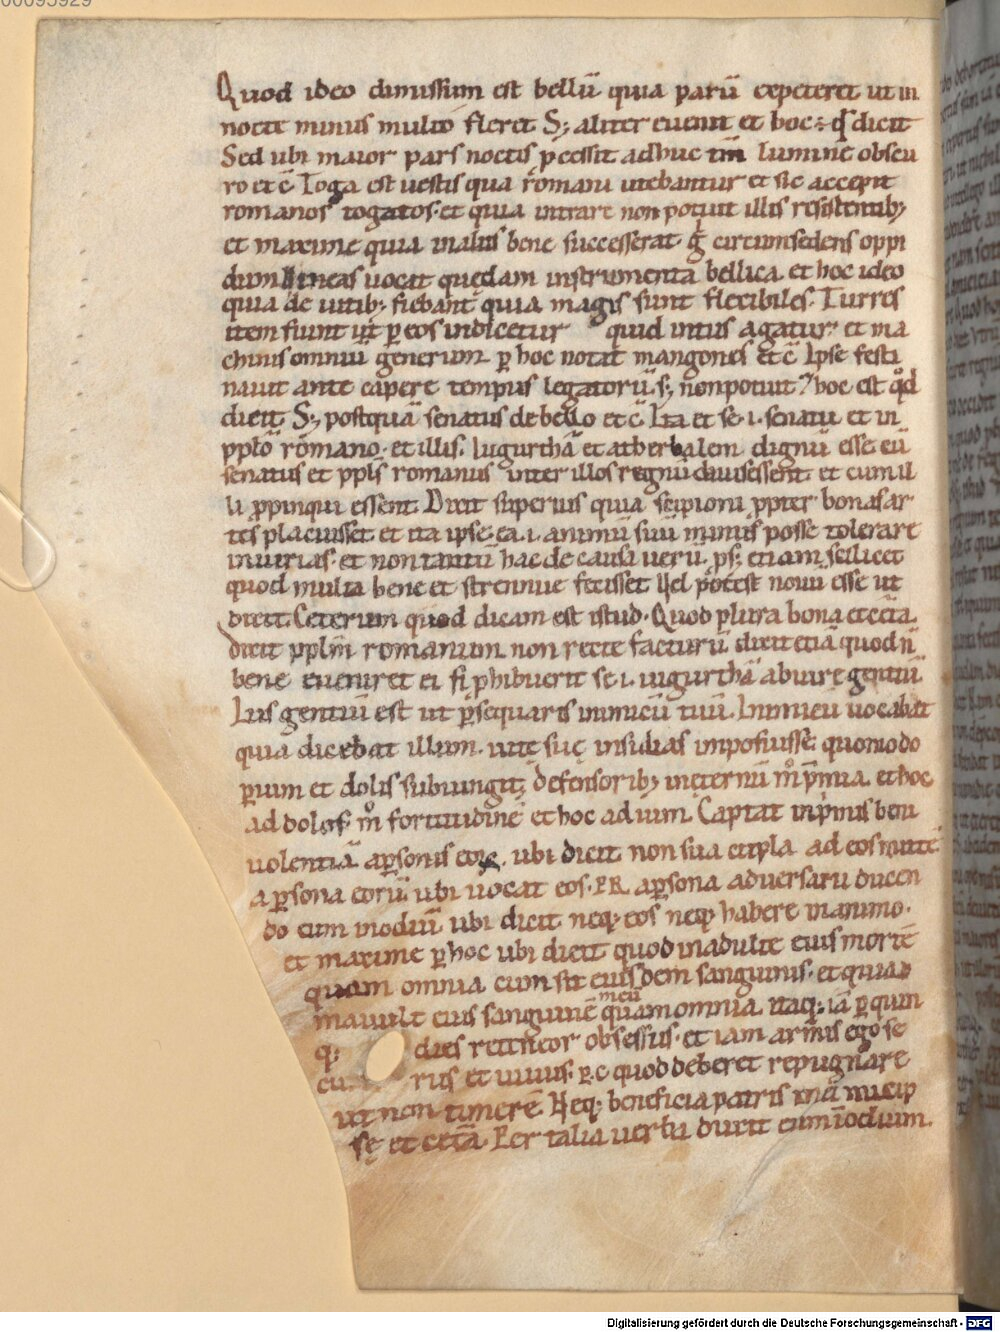 00095929
Quod ideo dimissum est bellū quia parū expeteret ut in
nocte minus multo fieret S; aliter euenit et hoc ÷ qđ dicit
Sed ubi maior pars noctis p̄cessit adhuc tm̄ lumine obscu
ro et c̄ Toga est uestis qua romani utebantur et sic accepit
romanos togatos· et quia intrare non potuit illis resistentib;
et maxime quia in aliis bene successerat· circumsedens oppi
dum lineas uocat quędam instrumenta bellica et hoc ideo
quia de uitib; fiebant quia magis sunt flexibiles. Turres
item fiunt ut p eos indicetur quid intus agatur· et ma
chinis omniū generum p hoc notat mangones et c̄ Ipse festi
nauit ante capere tempus legatorū· s; non potuit hoc est qđ
dicit S; postquā senatus de bello et c̄ Ita et se ·i· senatu et in
pplō romano· et illis· Iugurthā et atherbalem dignū esse eū
senatus et ppls romanus inter illos regnū diuisissent et cum il
li ppinqui essent. Dicit superius quia scipioni ppter bonas ar
tes placuisset et ita ipse· ea ·i· animū suū minus posse tolerare
iniurias· et non tantū hac de causa uerū ps; etiam scilicet
quod multa bene et strennue fecisset Vel potest nouū esse ut
dicit. Ceterum quod dicam est istud· Quod plura bona et cēta
dicit pplm romanum non recte facturū dicit etiā quod n̄
bene eueniret ei si phibuerit se ·i· iugurthā ab iure gentiū
Ius gentiū est ut psequaris inimicū tuū. Inimicū uocabat
quia dicebat illum uitę suę insidias imposuisse quomodo
pium et dolis subiungit defensorib; in
ad dolos· m̊ fortitudinē et hoc ad uim. Captat in pmis beni
uolentiā a psonis eorū ubi dicit non sua culpa ad eos mitte
a psona eorū ubi uocat eos· P.R. a psona aduersarii ducen
do eum in odiū ubi dicit neq; eos neq; habere in animo·
et maxime p hoc ubi dicit quod inadulte eius mortē
quam omnia cum sit eiusdem sanguinis· et quia
mauult eius sanguinē quam omnia itaq; iā p quin
meū
q; dies retineor obsessus· et iam armis ego se
cu rus et uiuus· p c quod deberet repugnare
ut non timerē. Neq; beneficia patris mei micip
sę et cetā. Per talia uerba ducit eum in odium.
Digitalisierung gefördert durch die Deutsche Forschungsgemeinschaft - DFG